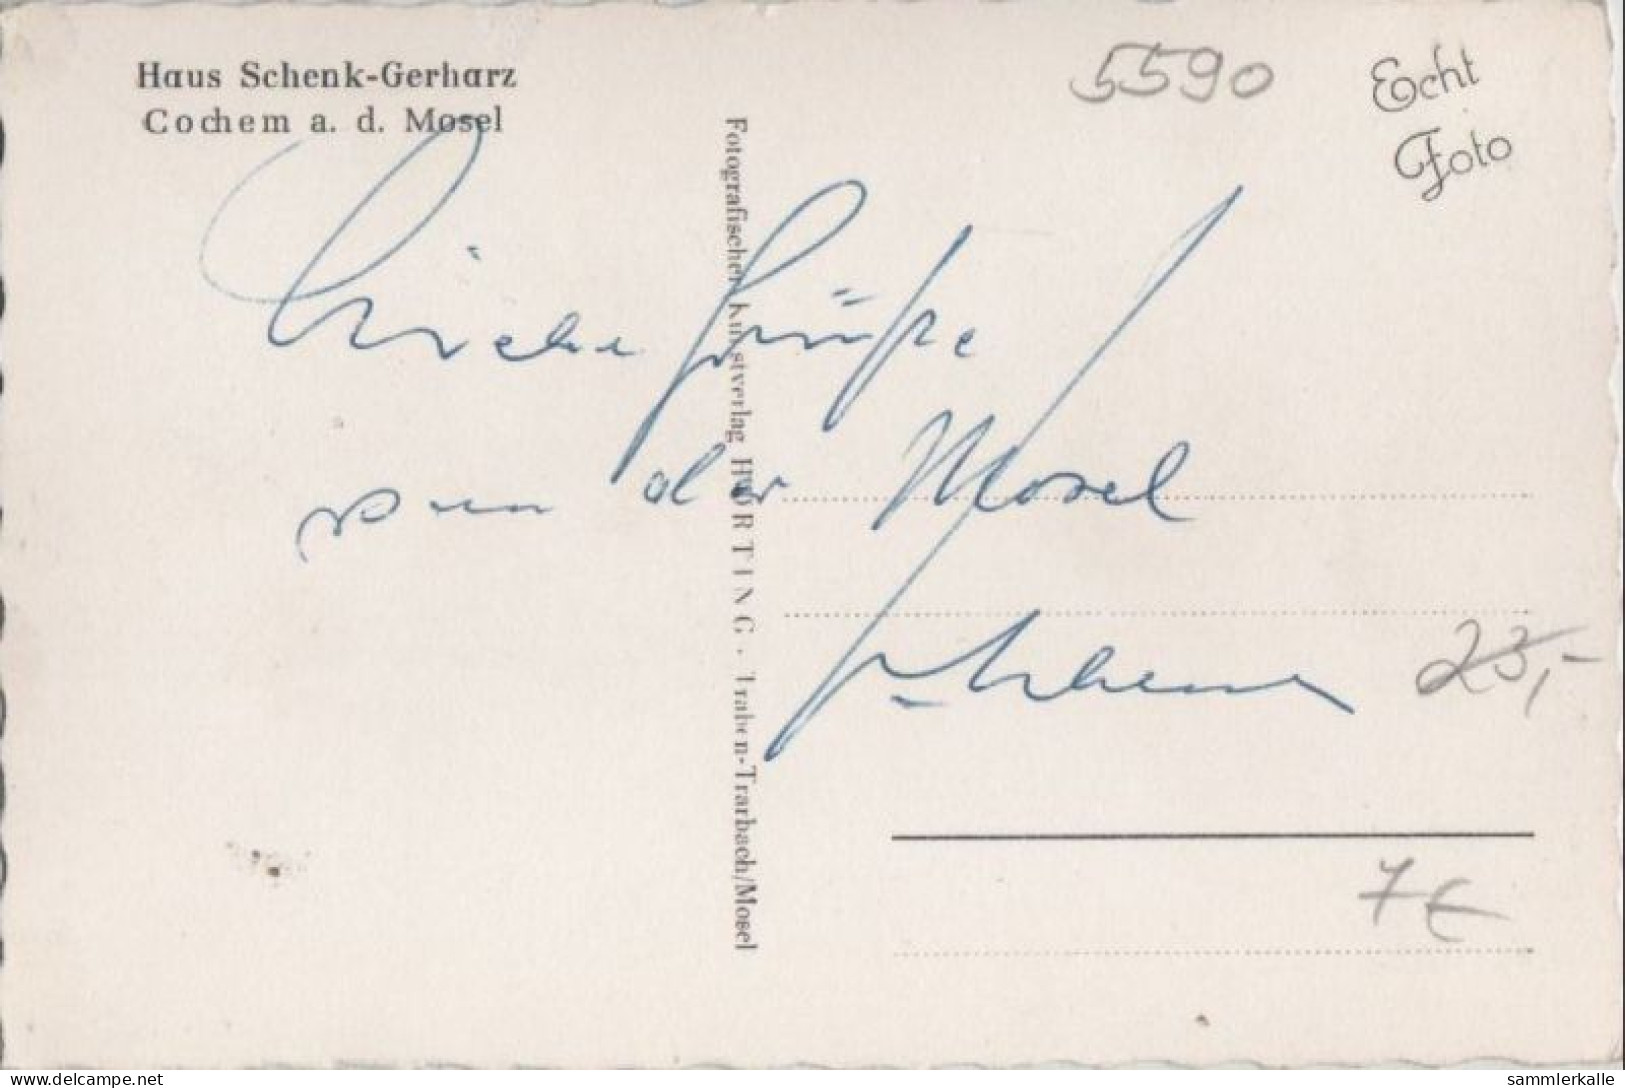 Haus Schenk-Gerharz
Cochem a. d. Mosel
5590
Echt
Foto
Fotografischer Kunstverlag HÖRTING · Traben-Trarbach/Mosel
Liebe Grüße
von der Mosel
23,-
7€
www.delcampe.net
sammlerkalle